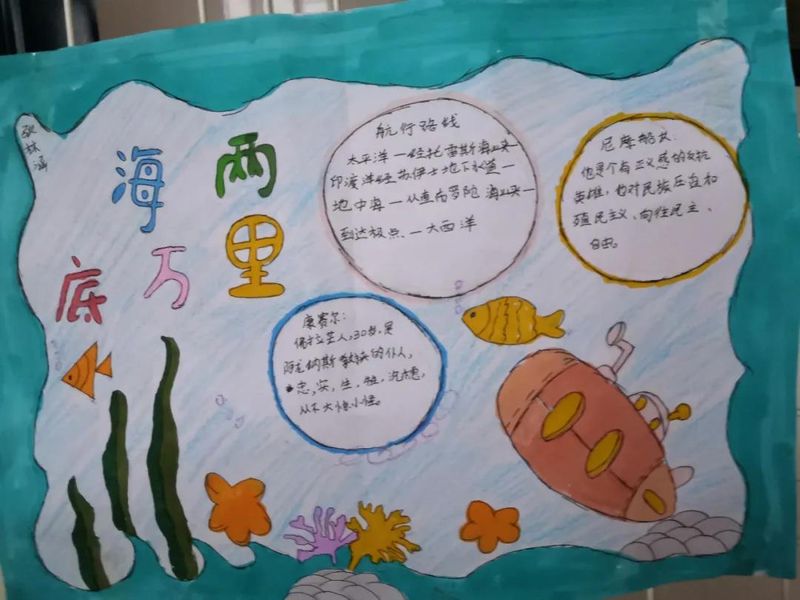 海底两万里
航行路线
太平洋一经托雷斯海峡一
印度洋经苏伊士地下水道一
地中海一从直布罗陀海峡一
到达极点、一大西洋
尼摩船长:
他是个有正义感的反抗
英雄,他对民族压迫和
殖民主义、向往民主、
自由。
康赛尔:
佛拉芒人,30岁,是
阿龙纳斯教授的仆人,
忠,实,生,性,沉稳,
从不大惊小怪。